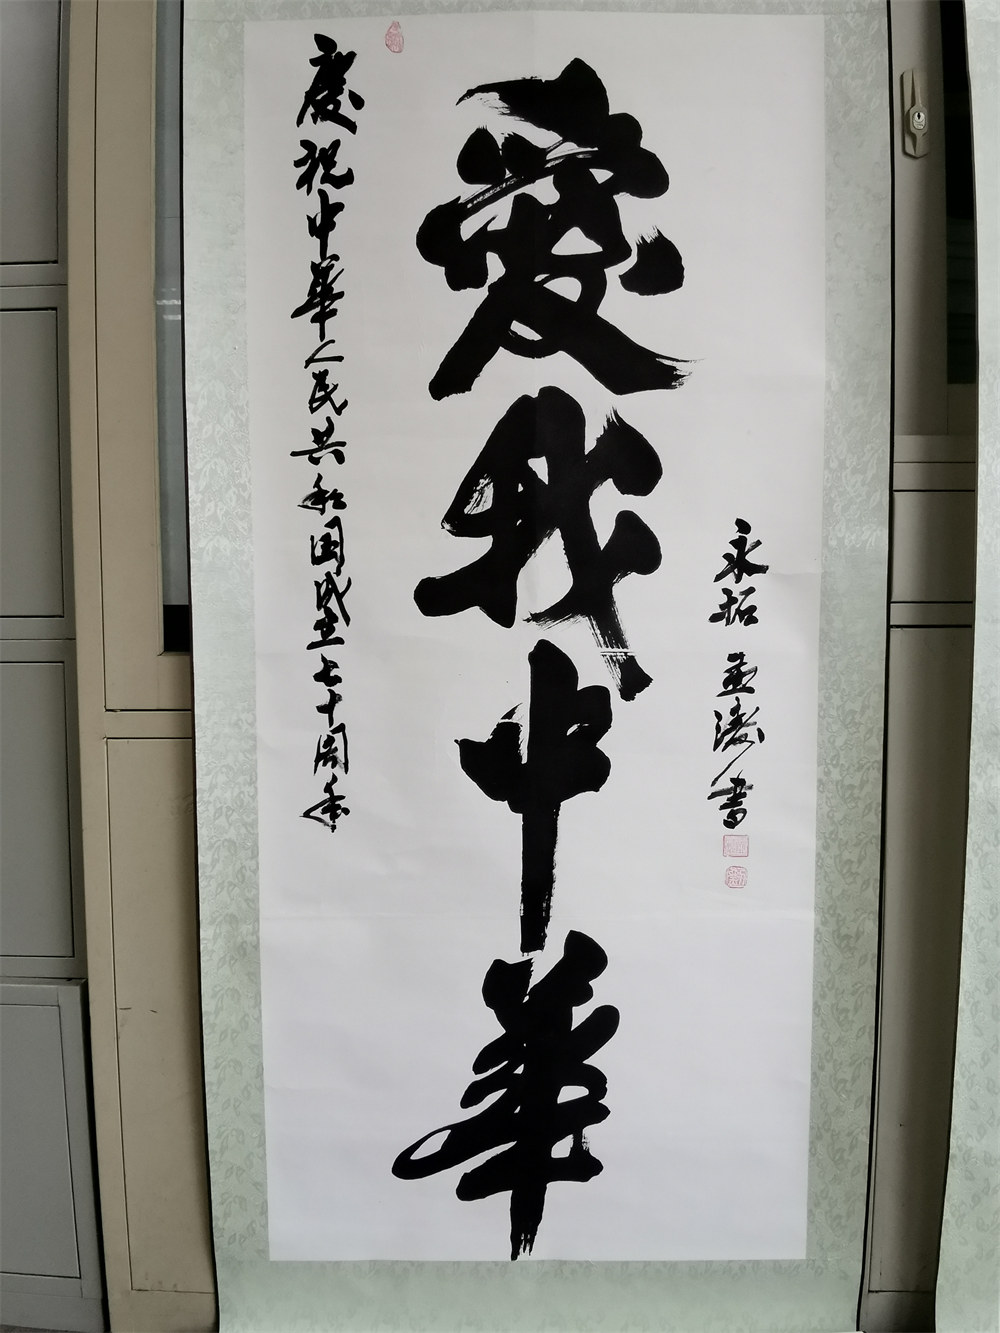 慶祝中華人民共和国成立七十周年
愛我中華
永拓 孟濤書